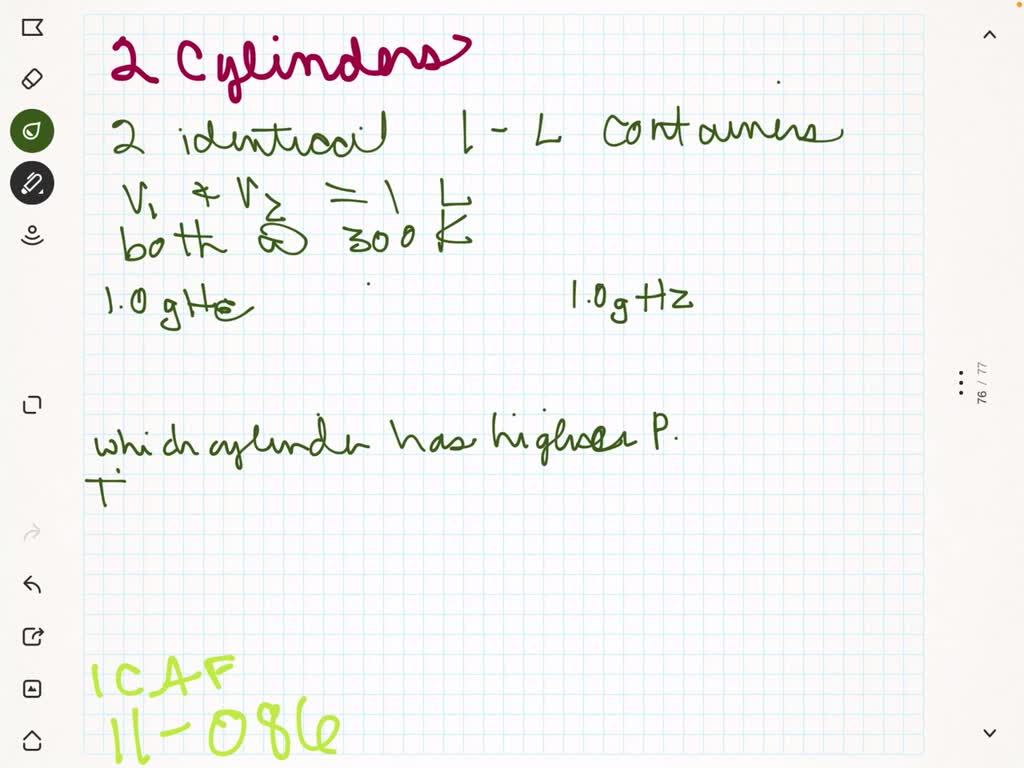 2 Cylinders
2 identical 1 - L containers
V1 & V2 = 1 L
both @ 300 K
1.0 g He 1.0 g H2
which cylinder has higher P.
T
ICAF
11-086
76 / 77